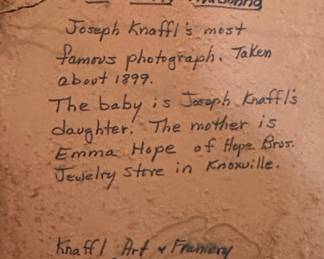 Madonna
Joseph Knaffl's most
famous photograph. Taken
about 1899.
The baby is Joseph Knaffl's
daughter. The mother is
Emma Hope of Hope Bros.
Jewelry Store in Knoxville.
Knaffl Art & Framery